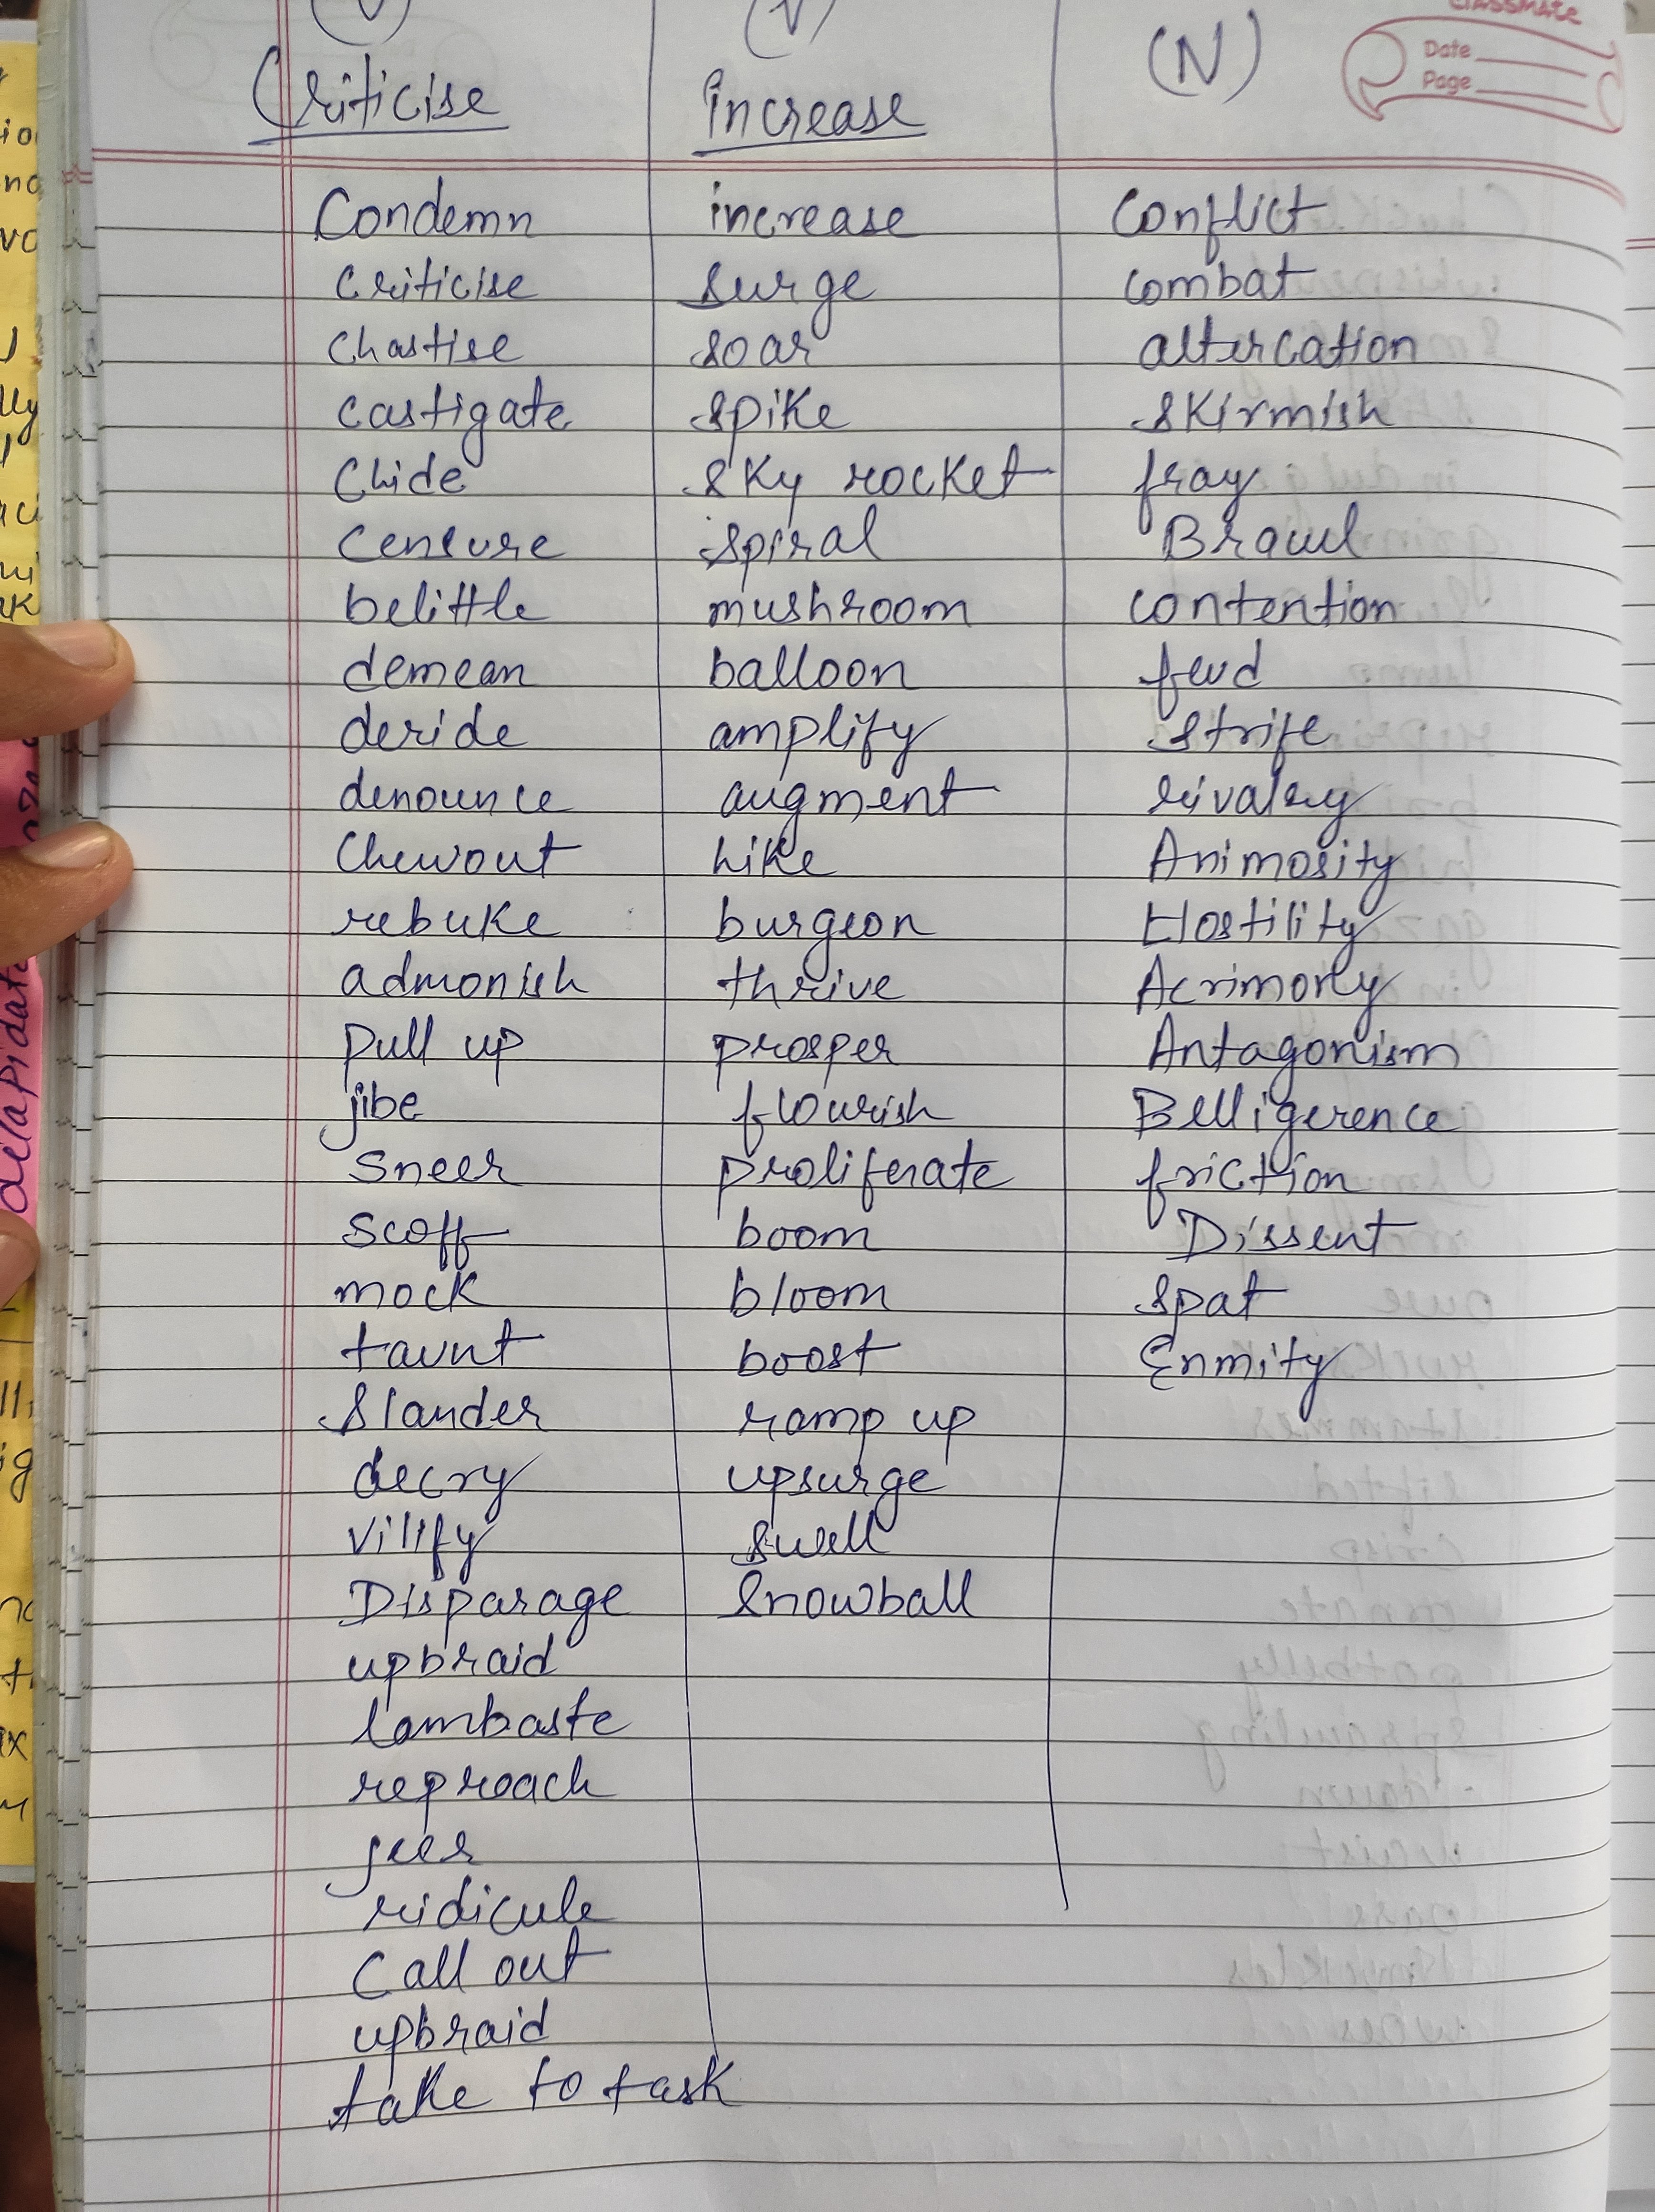 classmate
Date
Page
(V) (N)
Criticise increase
Condemn increase Conflict
Criticise surge combat
Chastise soar altercation
castigate spike skirmish
Chide sky rocket fray
censure spiral Brawl
belittle mushroom contention
demean balloon feud
deride amplify strife
denounce augment rivalry
Chewout hike Animosity
rebuke burgeon Hostility
admonish thrive Acrimony
Pull up prosper Antagonism
jibe flourish Belligerence
sneer proliferate friction
scoff boom Dissent
mock bloom spat
taunt boost Enmity
Slander ramp up
decry upsurge
vilify swell
Disparage Snowball
upbraid
lambaste
reproach
jeer
ridicule
Call out
upbraid
take to task
dilapidate